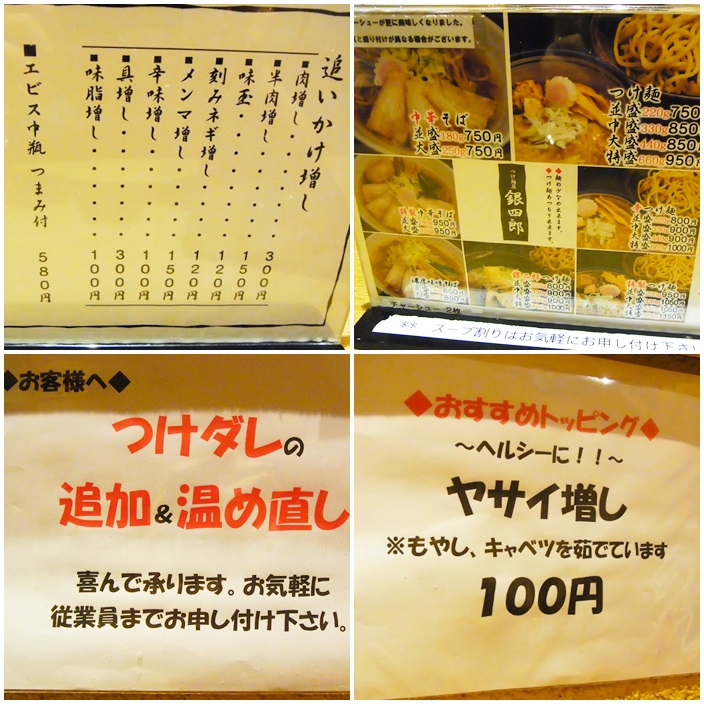 追いかけ増し
■肉増し・・・・・300円
■半肉増し・・・・150円
■味玉・・・・・・100円
■刻みネギ増し・・120円
■メンマ増し・・・150円
■辛味増し・・・・100円
■具増し・・・・・300円
■味脂増し・・・・100円
■エビス中瓶 つまみ付 580円
チャーシューが更に美味しくなりました。
と盛り付けが異なる場合がございます。
中華そば
並盛180g750円
大盛250g750円
つけ麺
並盛220g750
中盛330g850
大盛440g850
特盛660g950
特製中華そば
並盛 950円
大盛 950円
つけ麺屋
銀四郎
辛つけ麺
並盛 800円
中盛 900円
大盛 900円
特盛 1000円
濃厚味噌そば
特製つけ麺
チャーシュー 2枚
** スープ割りはお気軽にお申し付け下さい
◆お客様へ◆
つけダレの
追加&温め直し
喜んで承ります。お気軽に
従業員までお申し付け下さい。
◆おすすめトッピング◆
～ヘルシーに！！～
ヤサイ増し
※もやし、キャベツを茹でています
100円